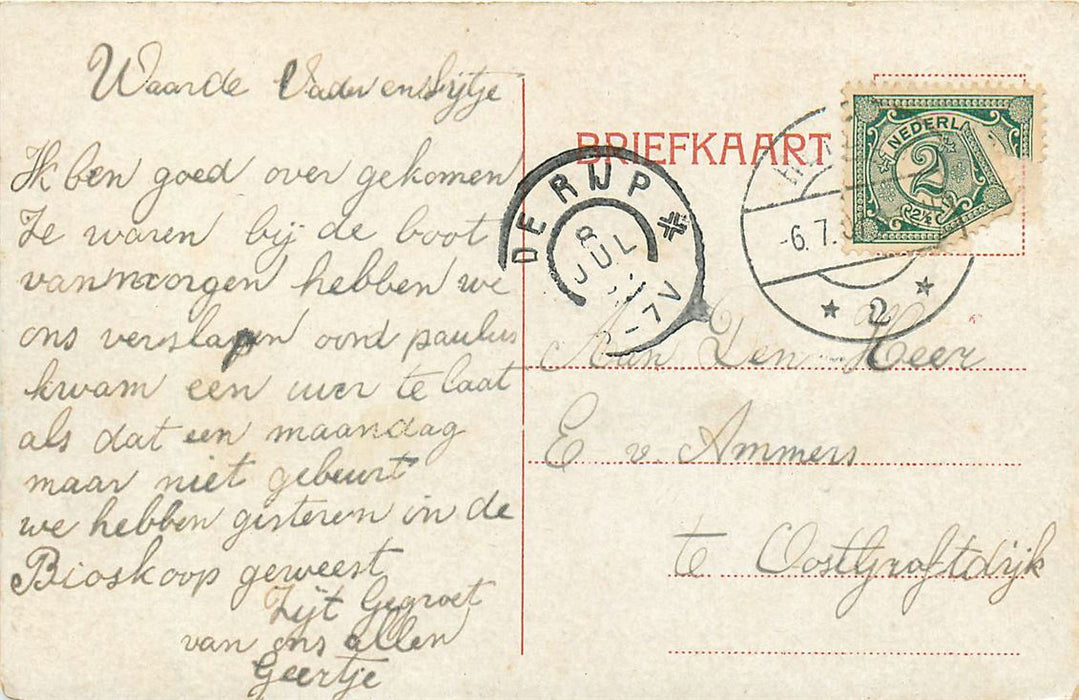 Waarde Vader en Sijtje
Ik ben goed over gekomen
Ze waren bij de boot
van morgen hebben we
ons verslapen oord paulus
kwam een uur te laat
als dat een maandag
maar niet gebeurt
we hebben gisteren in de
Bioskoop geweest
Zijt Gegroet
van ons allen
Geertje
BRIEFKAART
DE RIJP
8
JUL
-7V
NEDERLA
2½
-6.7.
2
Aan Den Heer
E v. Ammers
te OostGraftdijk